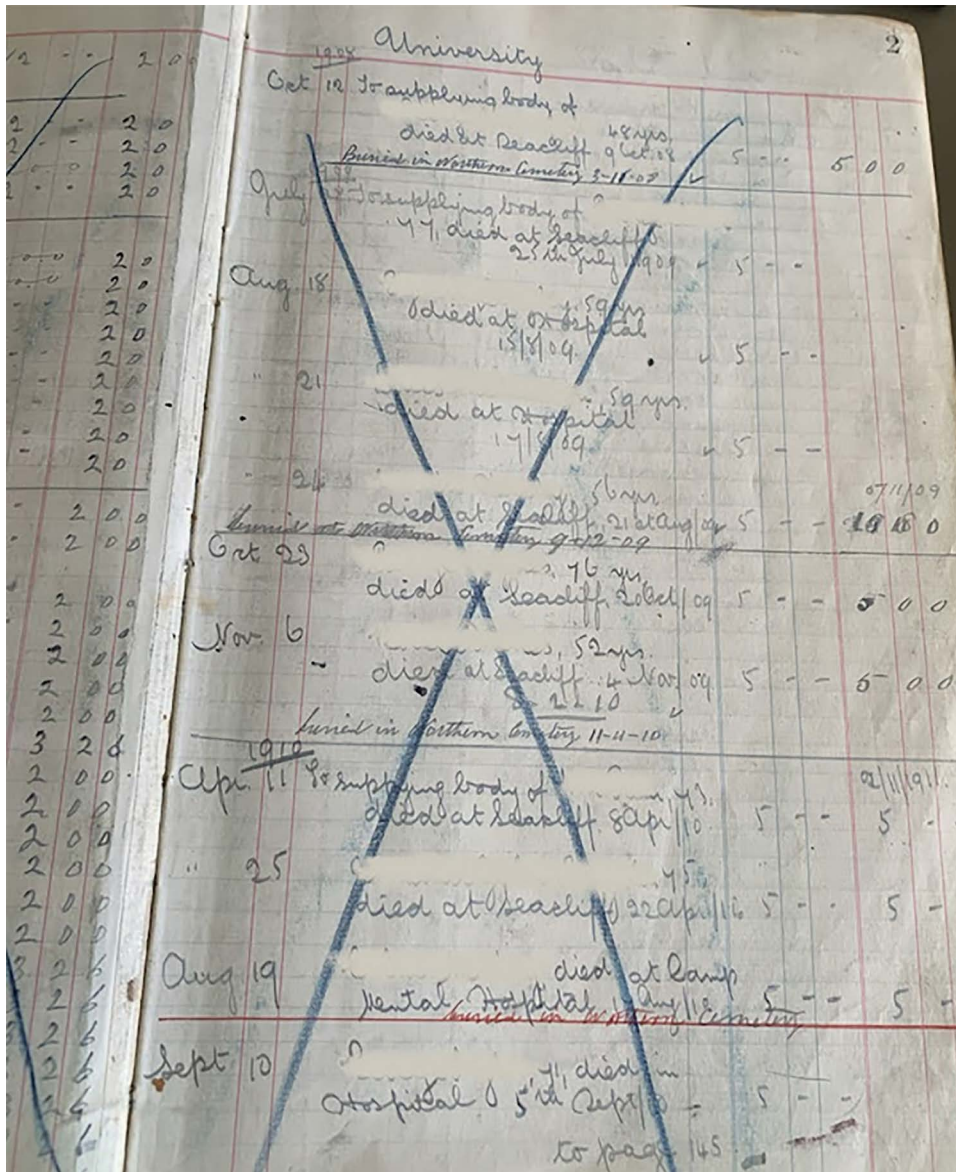 University
2
1908
Oct 12 To supplying body of
48 yrs.
died at Seacliff 9 Oct. 08 5 - - 5 0 0
Buried in Northern Cemetery 3-11-08
July To supplying body of
77, died at Seacliff
25th July 1909 5 - -
Aug 18
59 yrs
died at Hospital
15/8/09. 5 - -
" 21
59 yrs.
died at Hospital
17/8/09 5 - -
" 24 56 yrs. 07/11/09
died at Seacliff, 21st Aug/09 5 - -
buried in Northern Cemetery 9-12-09
Oct 23 76 yrs,
died at Seacliff, 20 Oct/09 5 - - 5 0 0
Nov. 6 52 yrs.
died at Seacliff 4 Nov/09 5 - - 5 0 0
buried in Northern Cemetery 11-11-10
1910
Apr. 11 To supplying body of 73. 02/11/1911.
died at Seacliff 8 Apr/10 5 - - 5 -
" 25 75,
died at Seacliff 22 Apr/10 5 - - 5 -
Aug 19 died at Camp
Mental Hospital Aug/10 5 - - 5 -
buried in Northern Cemetery
Sept 10 71, died in
Hospital 5th Sept/10 5 - -
to page 145